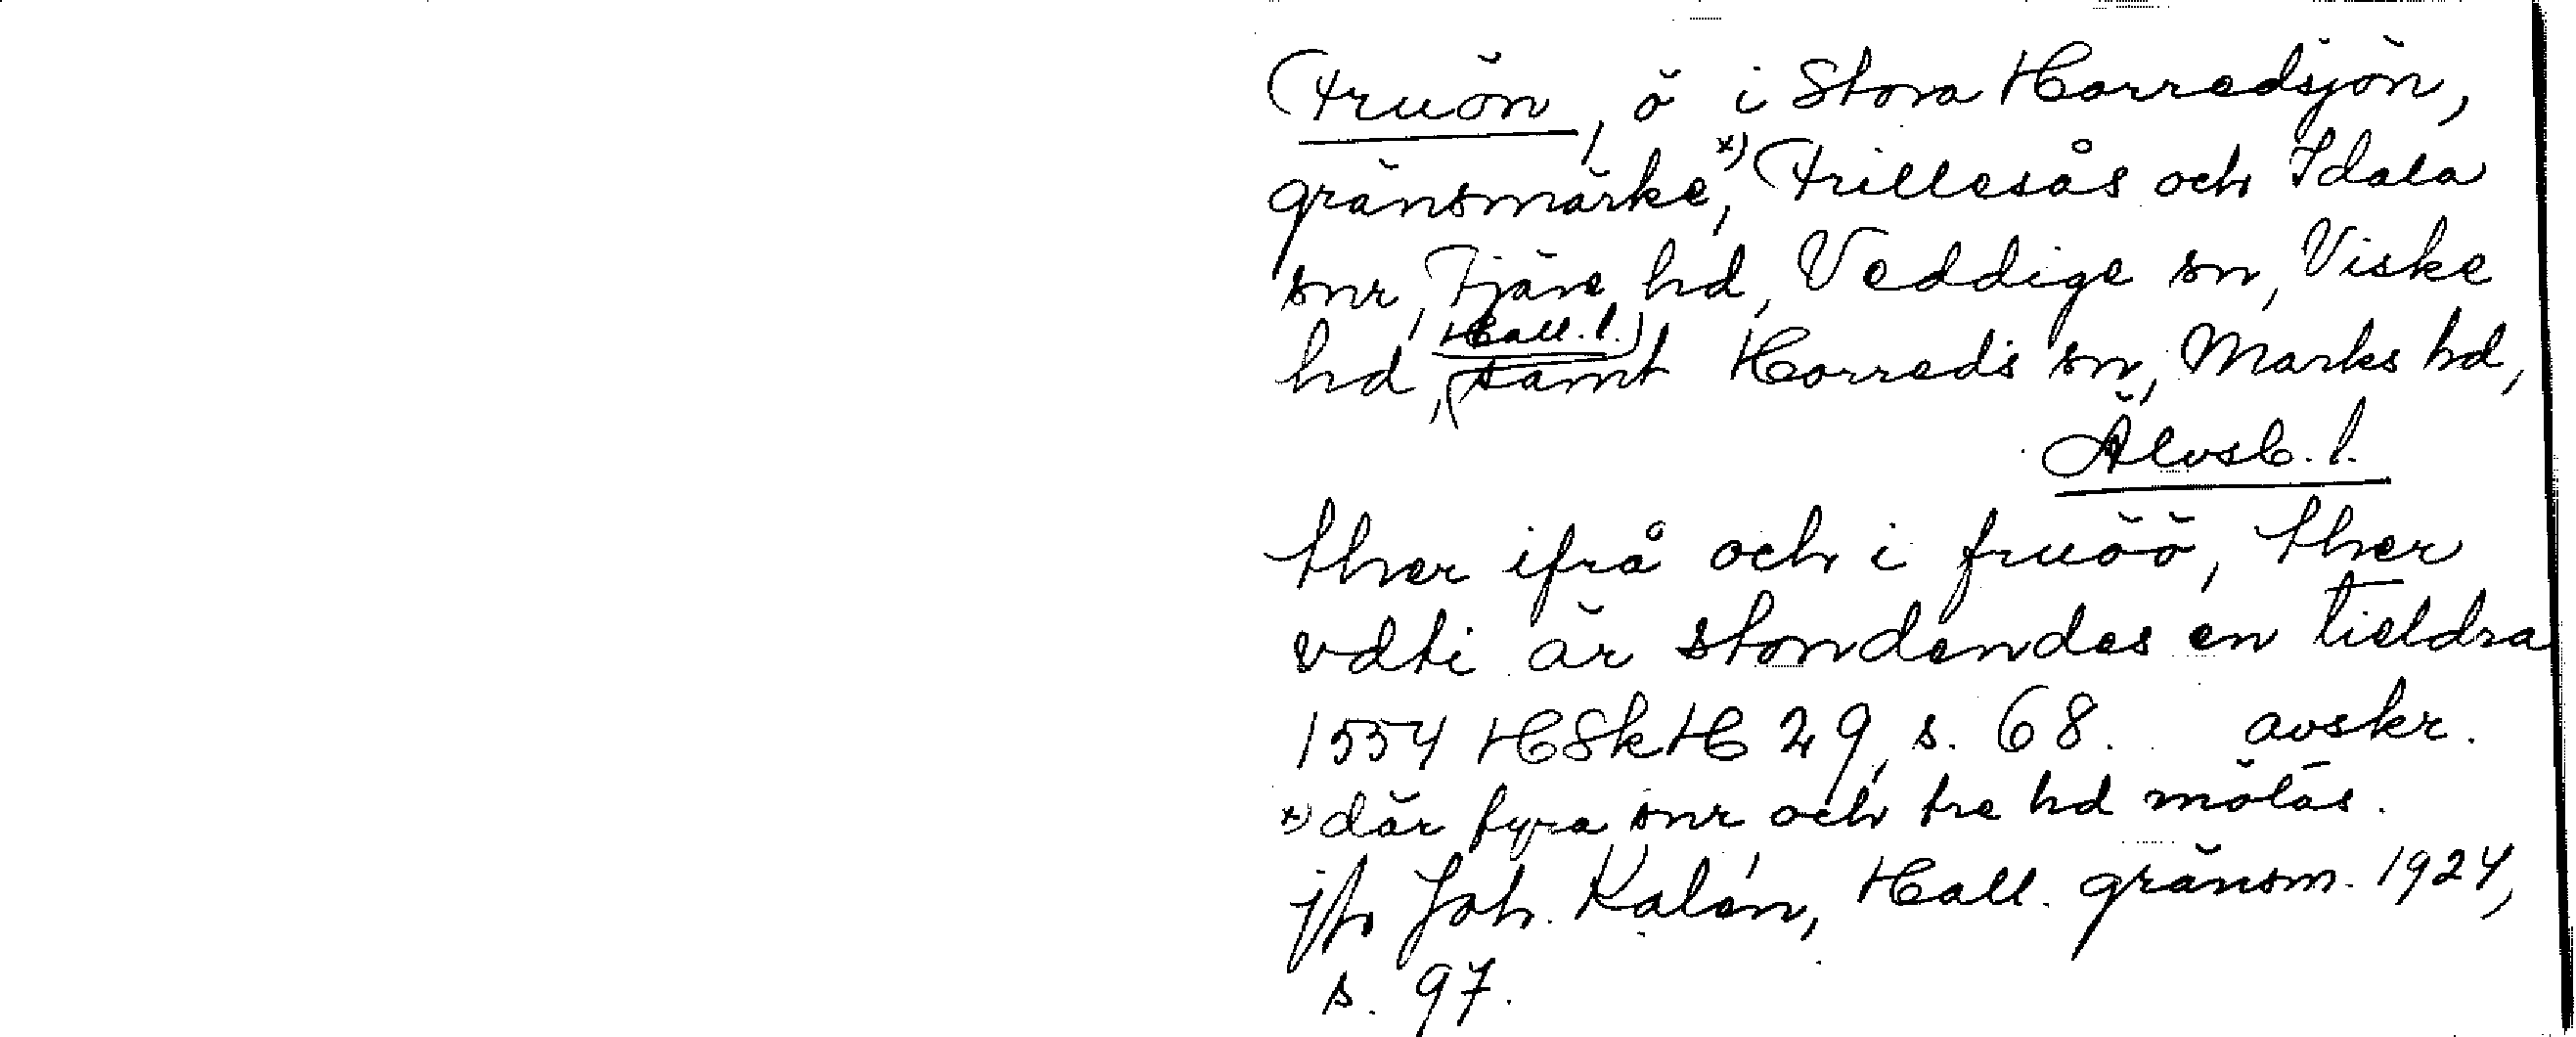 Fruön, ö i Stora Horredsjön,
gränsmärke,x) Frillesås och Idala
snr, Fjäre hd, Veddige sn, Viske
hd, Hall. l. samt Horreds sn, Marks hd,
Älvsb. l.
ther ifrå och i fruöö, ther
vdti är stondendes en tieldra
1554 HSkH 29, s. 68. avskr.
x) där fyra snr och tre hd mötas.
jfr Joh. Kalén, Hall. gränsm. 1924,
s. 97.